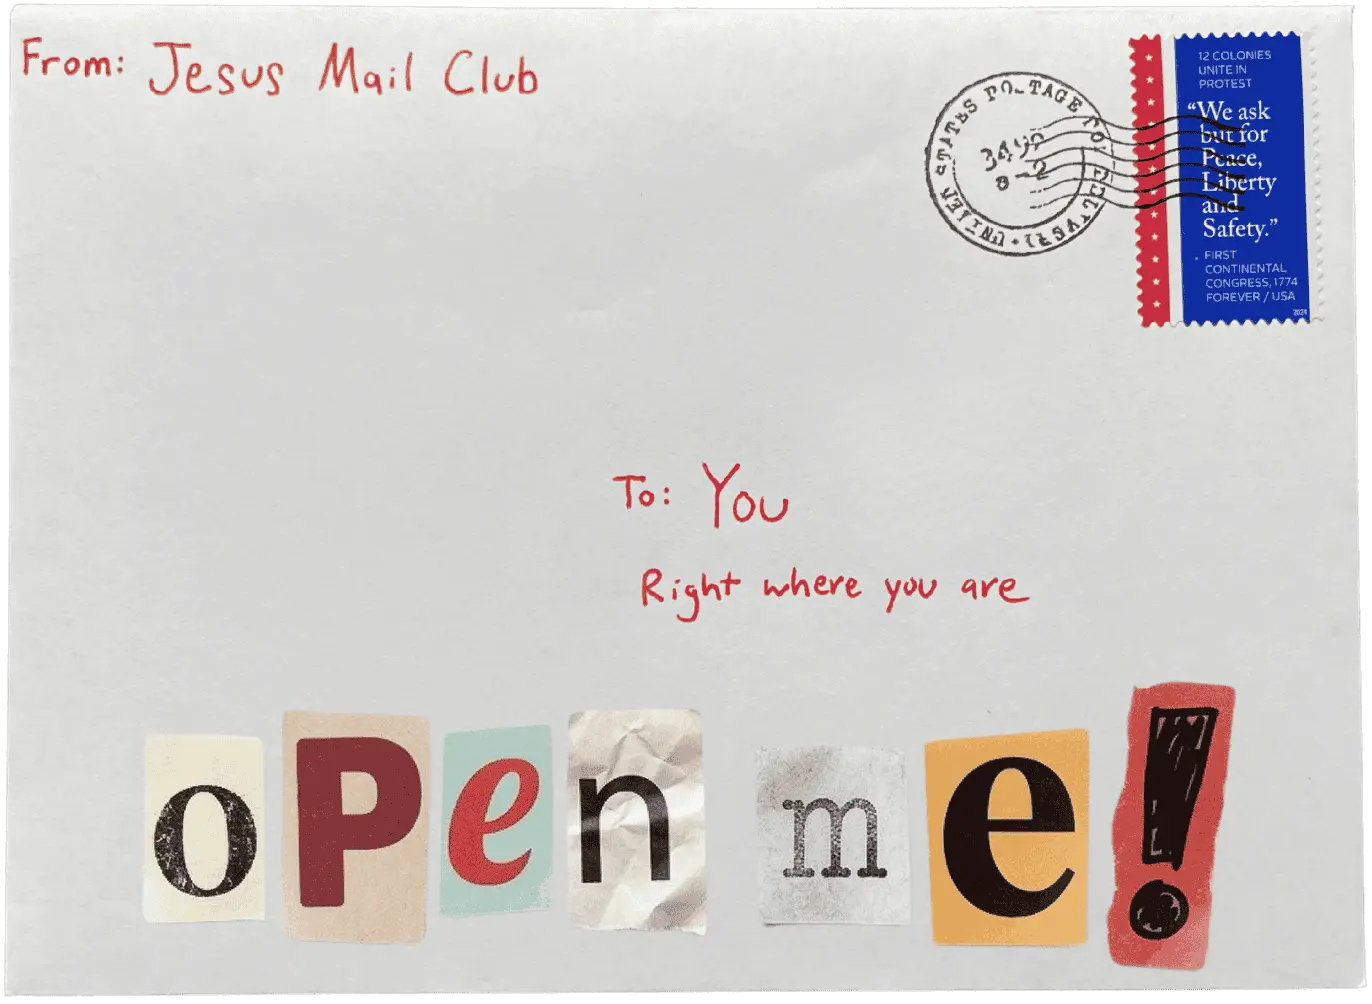 From: Jesus Mail Club
12 COLONIES
UNITE IN
PROTEST
"We ask
but for
Peace,
Liberty
and
Safety."
FIRST
CONTINENTAL
CONGRESS, 1774
FOREVER / USA
2024
To: You
Right where you are
oPen me!